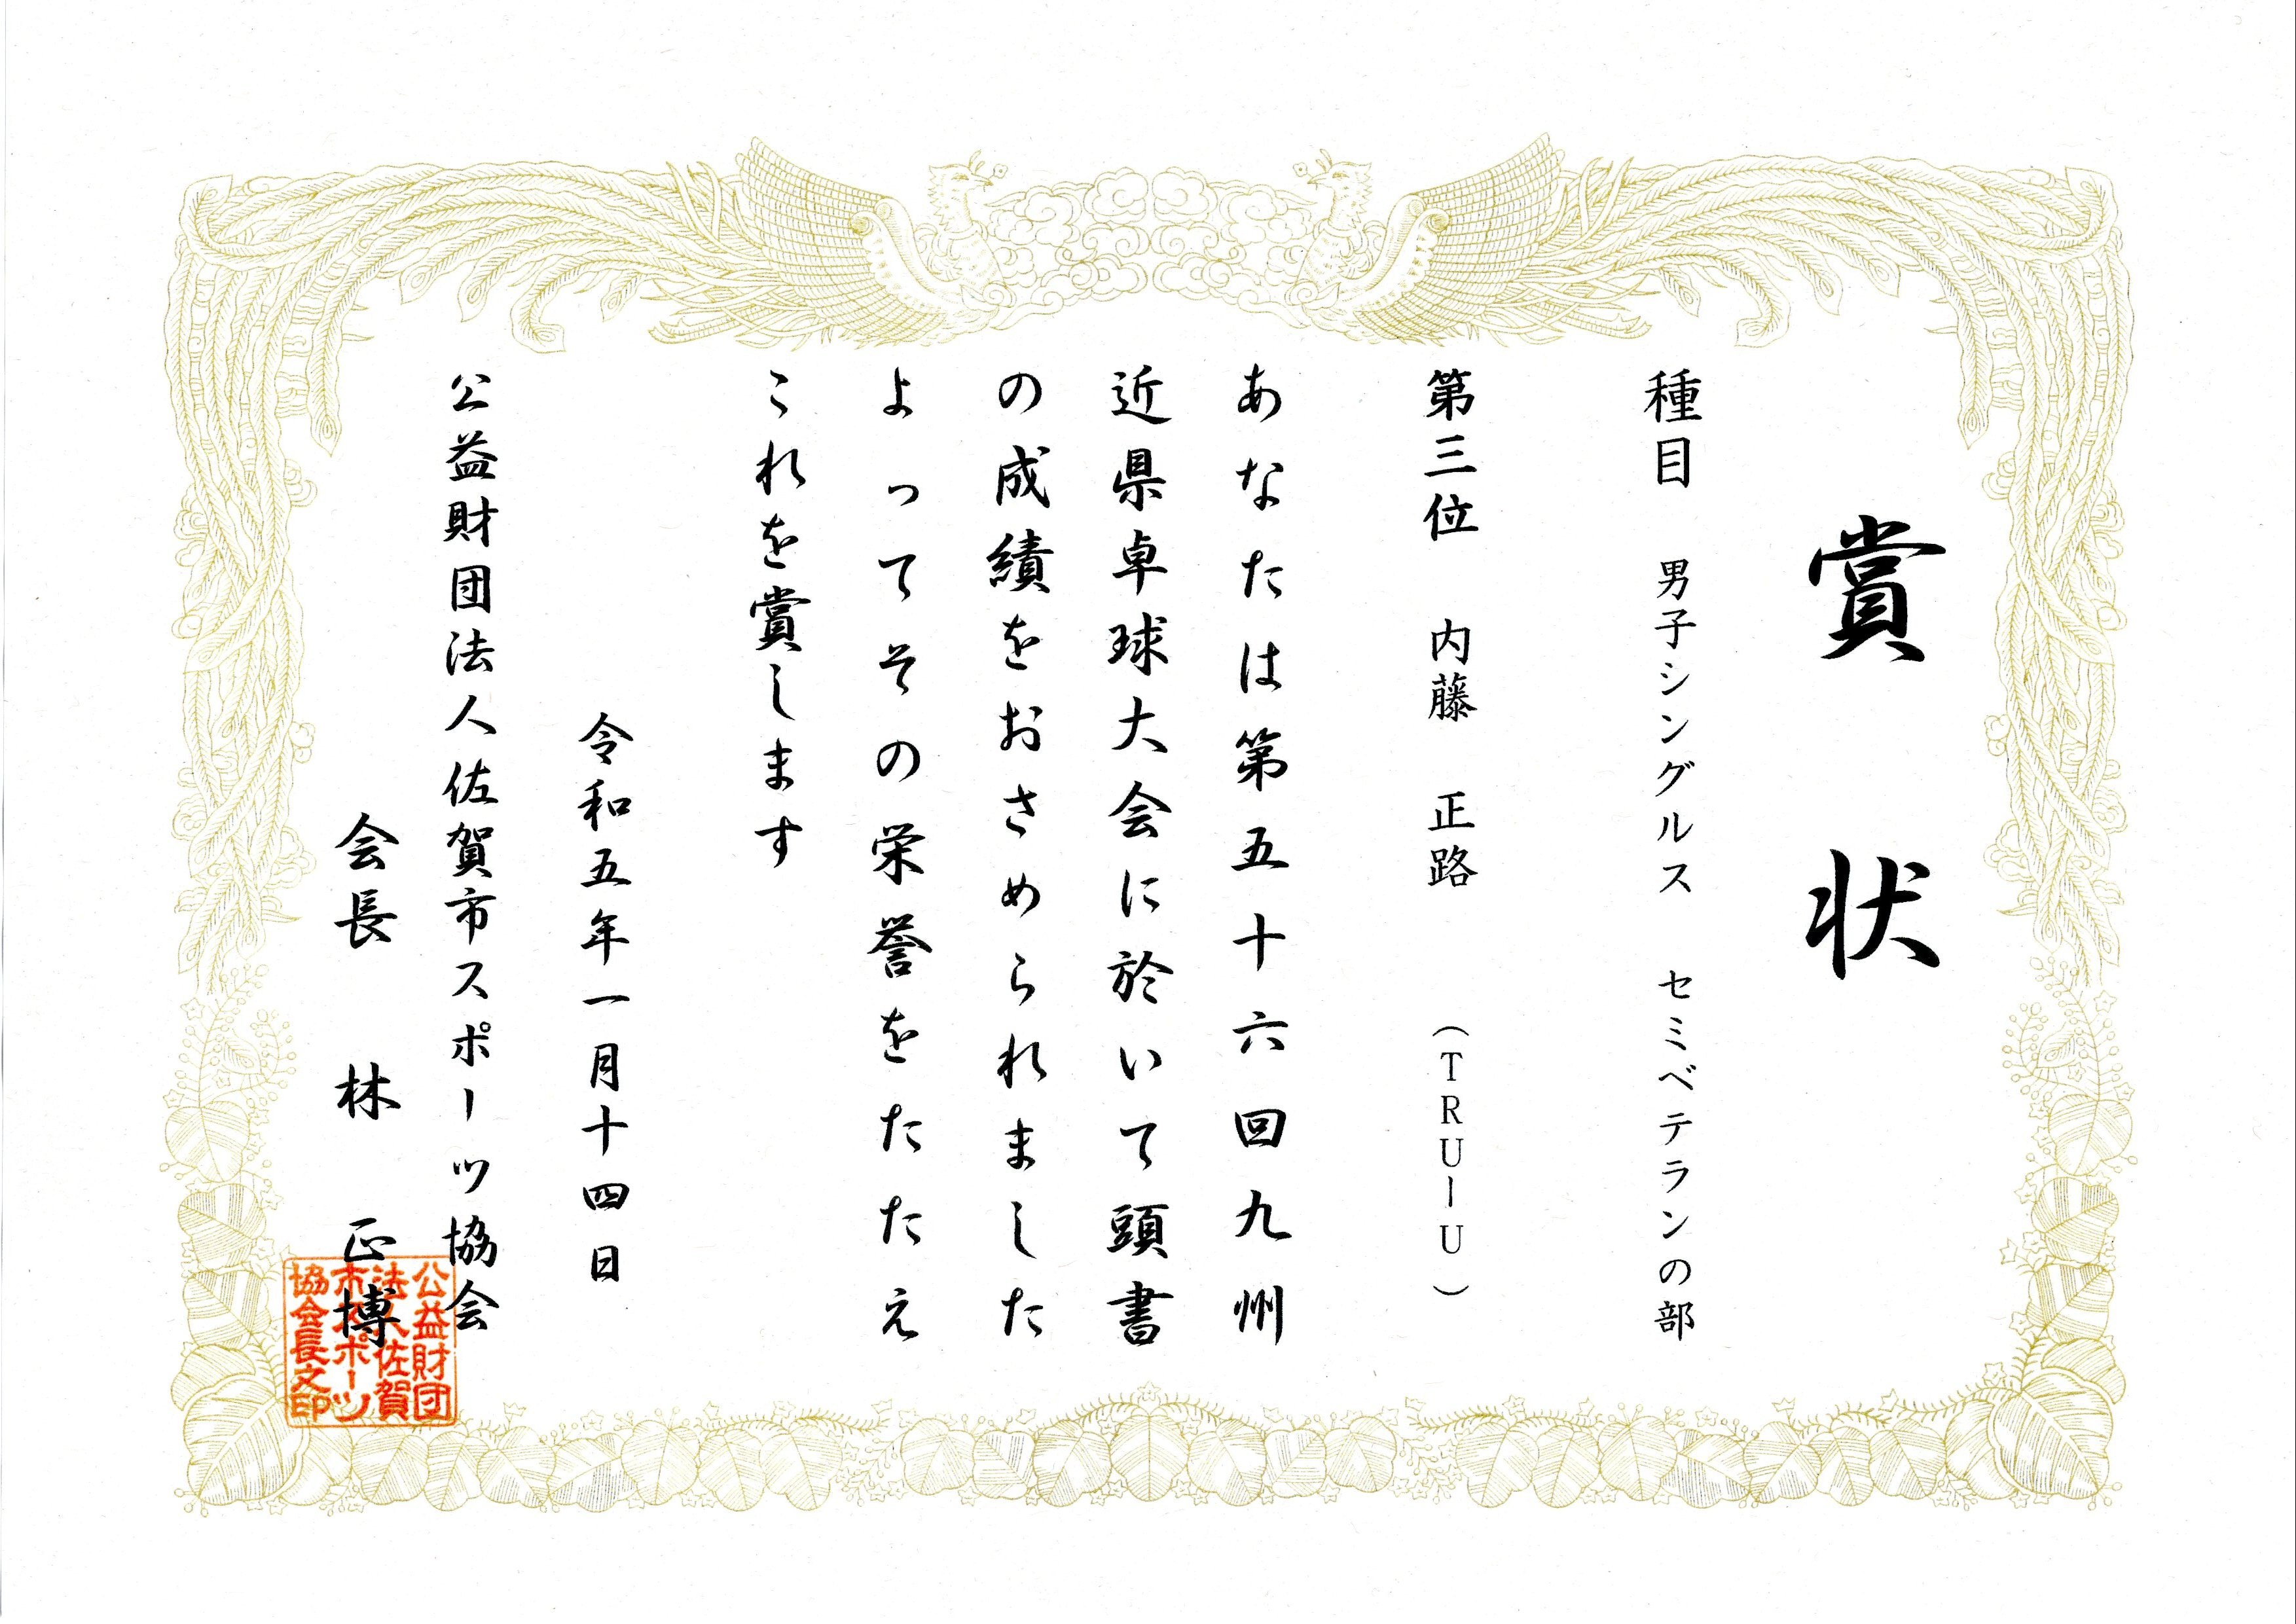 賞状
種目 男子シングルス セミベテランの部
第三位 内藤 正路 (TRU-U)
あなたは第五十六回九州
近県卓球大会に於いて頭書
の成績をおさめられました
よってその栄誉をたたえ
これを賞します
令和五年一月十四日
公益財団法人佐賀市スポーツ協会
会長 林 正博
公益財団
法人佐賀
市スポーツ
協会長之印